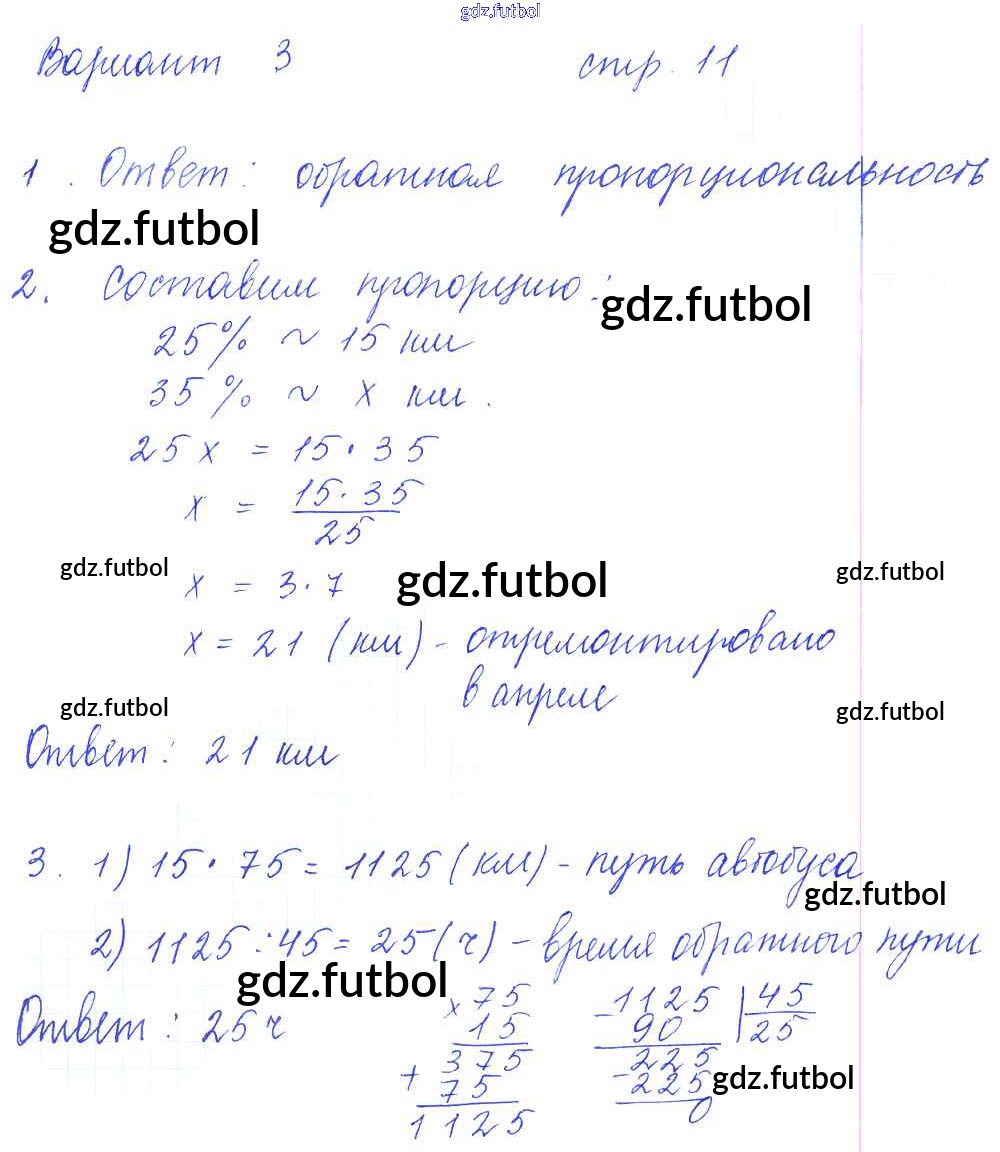 gdz.futbol
Вариант 3 стр. 11
1. Ответ: обратная пропорциональность
gdz.futbol
2. Составим пропорцию:
gdz.futbol
25% ~ 15 км
35% ~ x км.
25x = 15·35
x = 15·35/25
gdz.futbol x = 3·7 gdz.futbol gdz.futbol
x = 21 (км) - отремонтировано
в апреле
gdz.futbol gdz.futbol
Ответ: 21 км
3. 1) 15·75 = 1125 (км) - путь автобуса
gdz.futbol
2) 1125:45 = 25 (ч) - время обратного пути
gdz.futbol
Ответ: 25 ч
×75 -1125 |45
15 90 25
+375 225
75 -225 gdz.futbol
1125 0